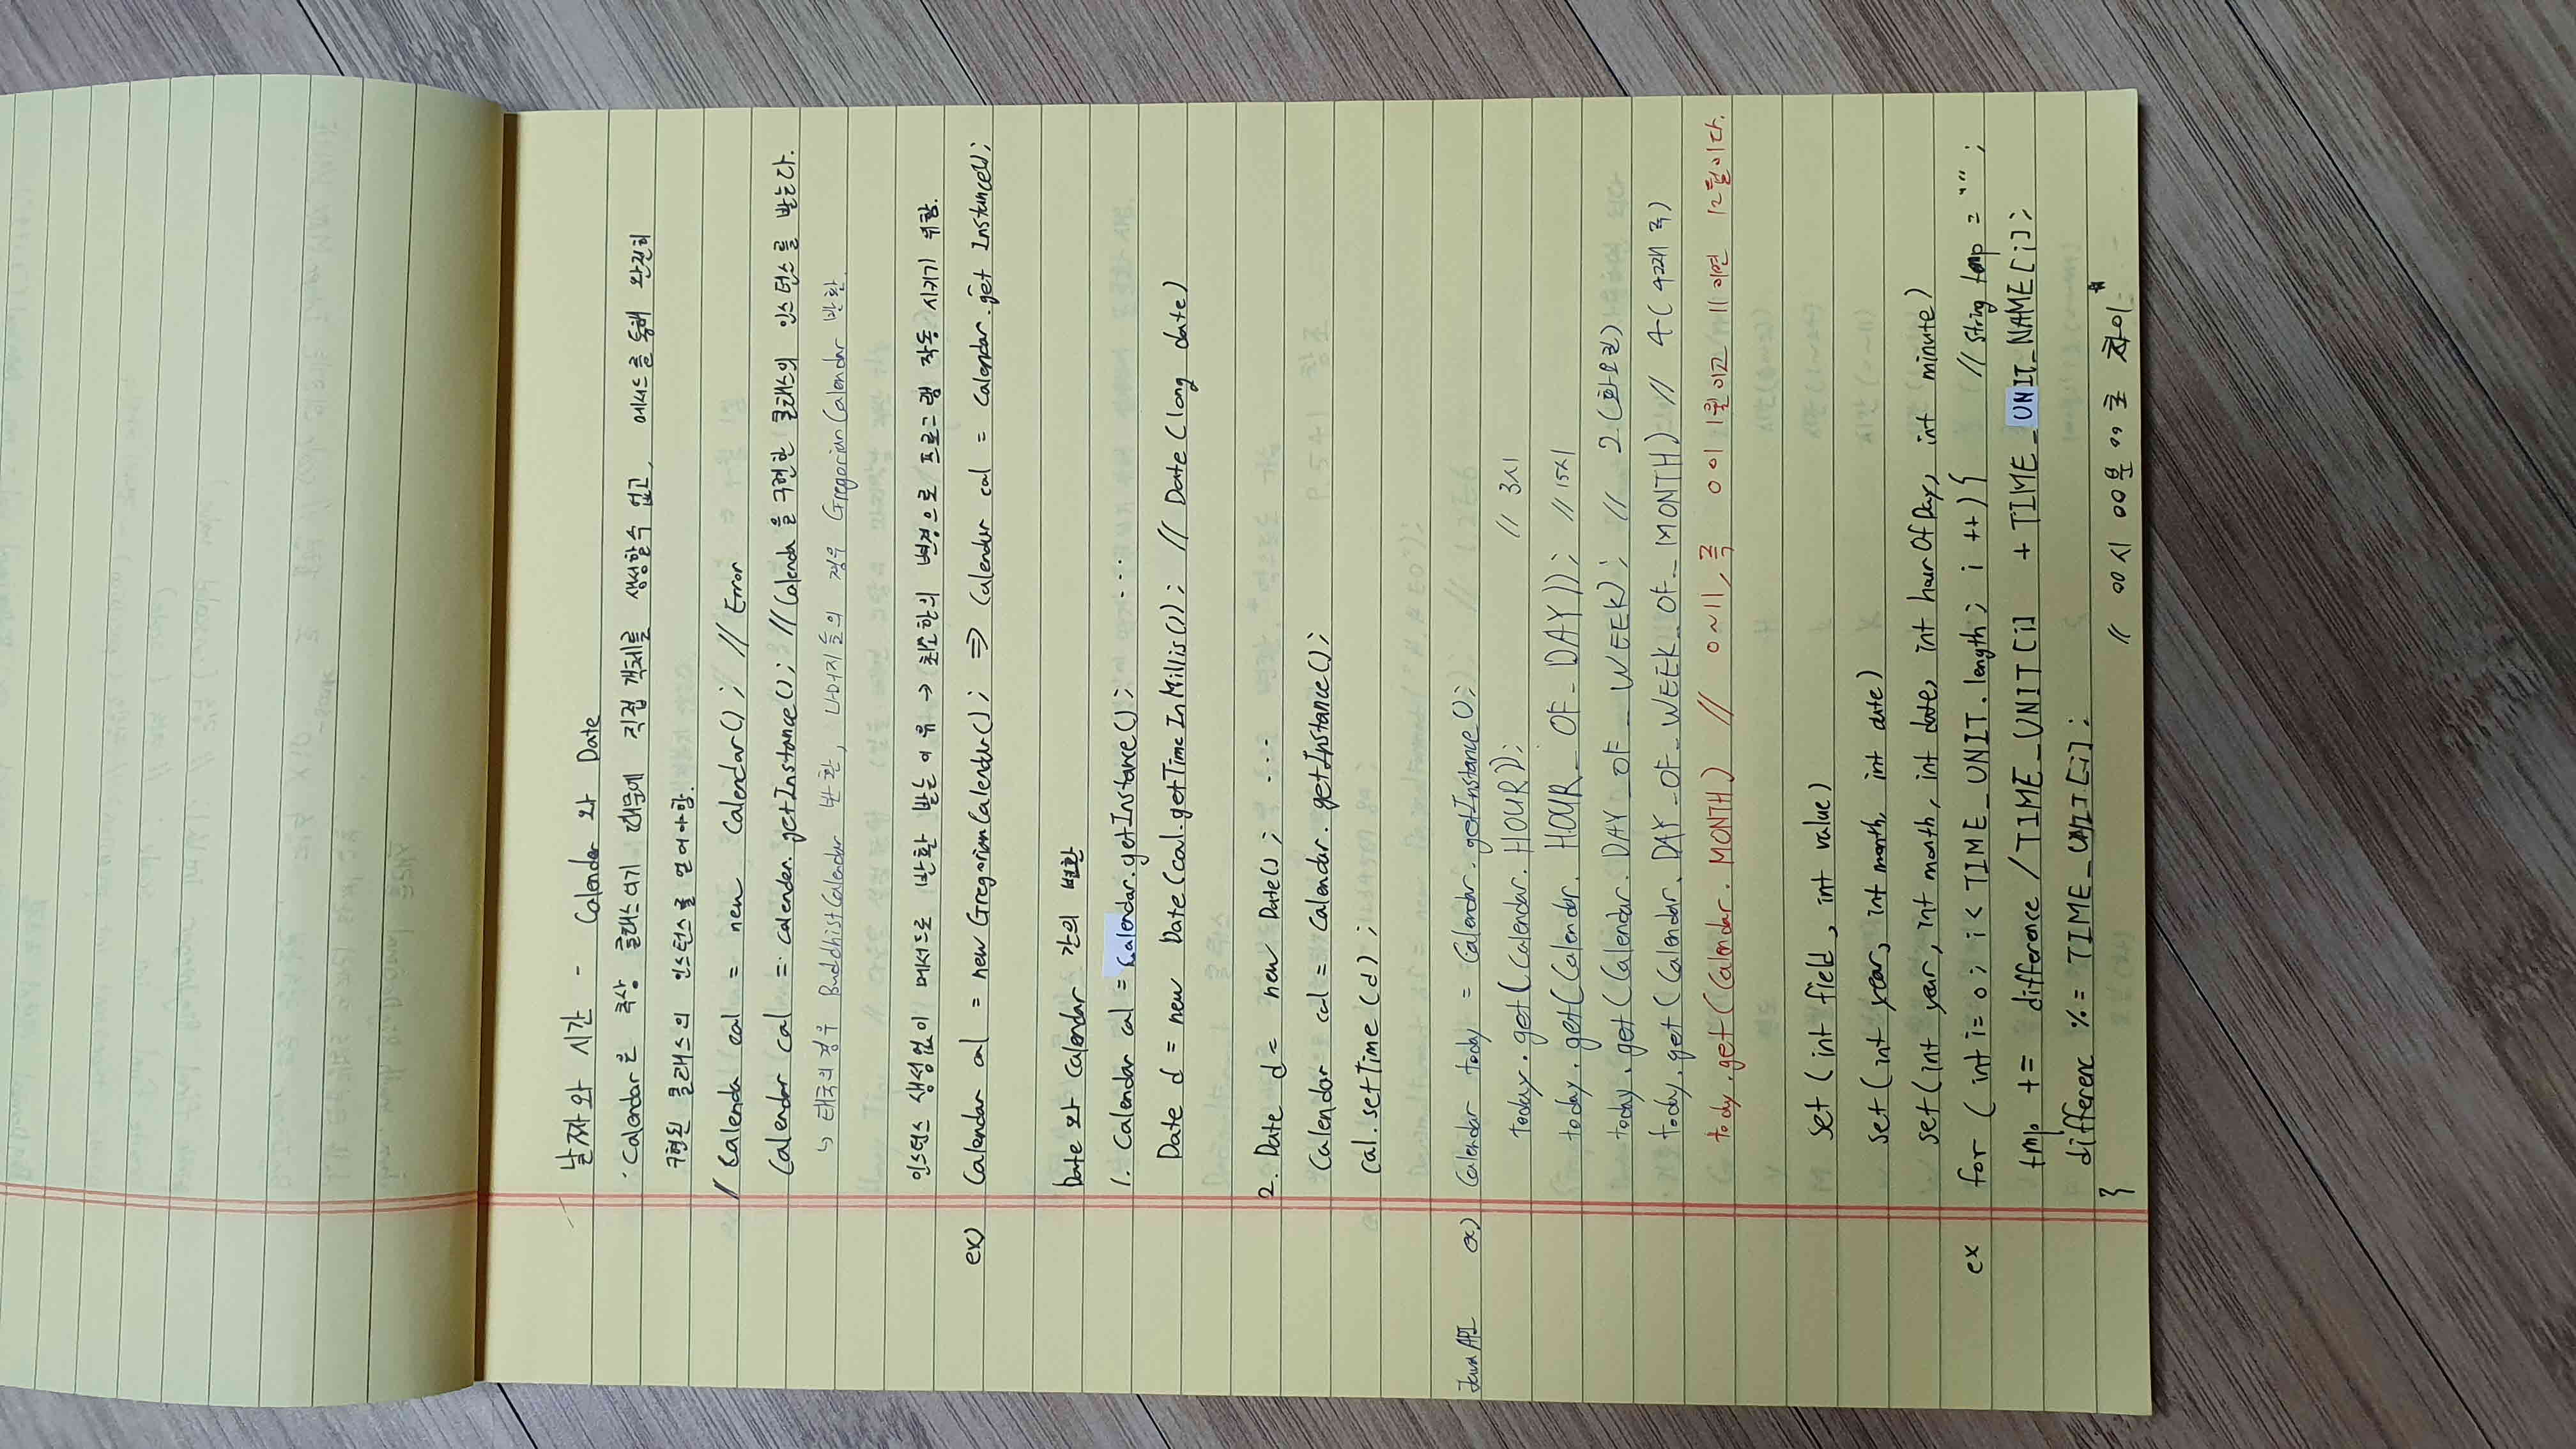 날짜와 시간 - Calender 와 Date
· Calendar은 추상 클래스이기 때문에 직접 객체를 생성할 수 없고, 메서드를 통해 완전히
구현된 클래스의 인스턴스를 얻어야함.
// Calenda cal = new Calendar(); // Error
Calendar cal = calender.getInstance(); // Calenda을 구현한 클래스의 인스턴스를 받는다.
↳ 태국의 경우 BuddhistCalendar 반환, 나머지들의 경우 GregorianCalendar 반환.
인스턴스 생성없이 메서드로 반환 받는 이유 → 최소한의 변경으로 프로그램 작동 시키기 위함.
ex) Calendar cal = new GregorianCalendar(); ⇒ Calendar cal = Calendar.get Instance();
Date 와 Calendar 간의 변환
1. Calendar cal = Calendar.getInstance(); ...
Date d = new Date(cal.getTimeInMillis()); // Date (long date)
2. Date d = new Date(); ...
Calendar cal = Calendar.getInstance();
cal.setTime(d);
Java API ex) Calendar today = Calendar.getInstance();
today.get(Calendar.HOUR)); // 3시
today.get(Calendar.HOUR_OF_DAY)); // 15시
today.get(Calendar.DAY_OF_WEEK); // 2(화요일)
today.get(Calendar.DAY_OF_WEEK_OF_MONTH) // 4(4째 주)
today.get(Calendar.MONTH) // 0~11, 즉 0이 1월이고 11이면 12월이다.
set (int field, int value)
set (int year, int month, int date)
set(int year, int month, int date, int hourOfDay, int minute)
ex for (int i=0; i < TIME_UNIT.length; i++){ // String tmp = "";
tmp += difference / TIME_UNIT[i] + TIME_UNIT_NAME[i];
differenc %= TIME_UNIT[i];
} // 00시 00분 00초 차이